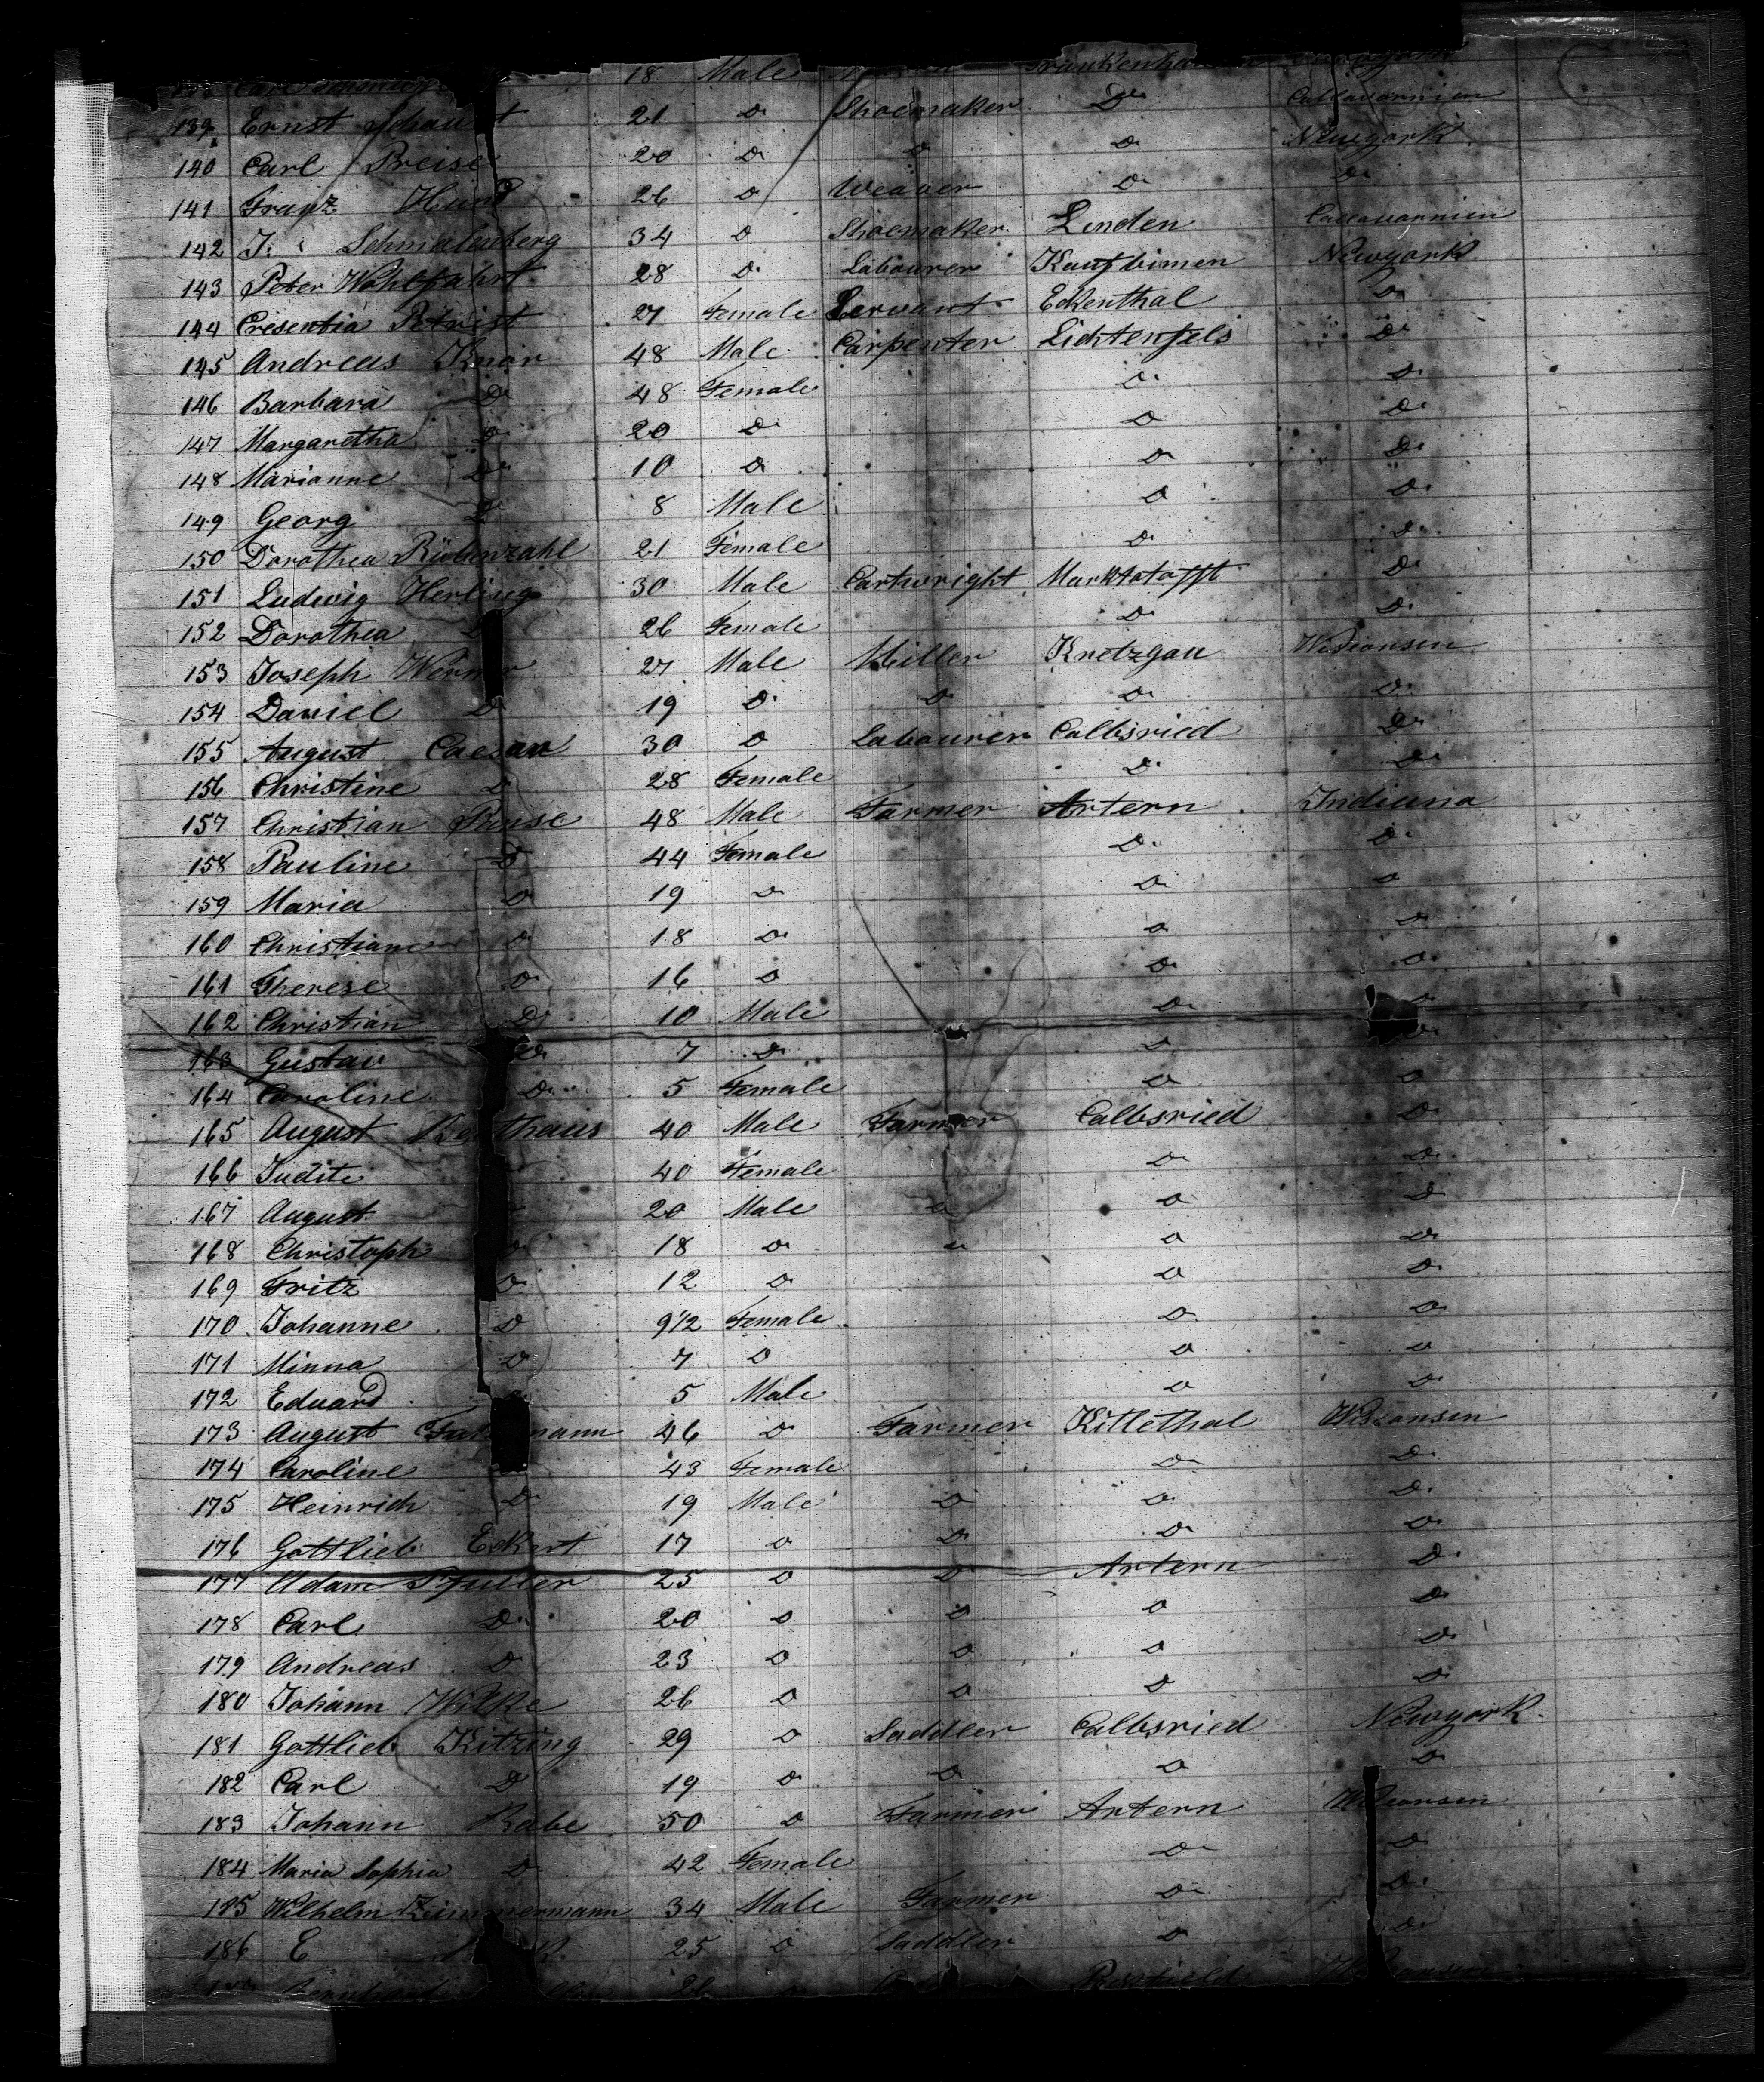 138 Carl 18 Male
139 Ernst Schau t 21 Do Shoemaker Do Callavornien
140 Carl Preise 20 Do Do Do Newyork
141 Franz Hund 26 Do Weaver Do Do
142 J. Schmalenberg 34 Do Shoemaker Linden Callavornien
143 Peter Wohlfahrt 28 Do Labourer Kaufbimen Newyork
144 Cresentia 27 Female Servant Eckenthal Do
145 Andreas Knor 48 Male Carpenter Lichtenfels Do
146 Barbara Do 48 Female Do Do
147 Margaretha Do 20 Do Do Do
148 Marianne Do 10 Do Do Do
149 Georg Do 8 Male Do Do
150 Dorothea Rübenzahl 21 Female Do Do
151 Ludwig Herling 30 Male Cartwright Do
152 Dorothea D 26 Female Do Do
153 Joseph Wern r 27 Male Miller Kretzgau Wisconsin
154 Daniel D 19 Do Do Do Do
155 August Caesar 30 Do Labourer Calbsried Do
156 Christine Do 28 Female Do Do
157 Christian 48 Male Farmer Artern Indiana
158 Pauline Do 44 Female Do Do
159 Maria Do 19 Do Do Do
160 Christiane Do 18 Do Do Do
161 Therese Do 16 Do Do Do
162 Christian Do 10 Male Do Do
163 Gustav Do 7 Do Do Do
164 Caroline Do 5 Female Do Do
165 August B thaus 40 Male Farmer Calbsried Do
166 Judite 40 Female Do Do
167 August 20 Male Do Do Do
168 Christoph Do 18 Do Do Do Do
169 Fritz Do 12 Do Do Do
170 Johanne Do 9 1/2 Female Do Do
171 Minna Do 7 Do Do Do
172 Eduard Do 5 Male Do Do
173 August mann 46 Do Farmer Kittethal Wisconsin
174 Caroline Do 43 Female Do Do
175 Heinrich Do 19 Male Do Do Do
176 Gottlieb Eckert 17 Do Do Do Do
177 Adam 25 Do Do Artern Do
178 Carl Do 20 Do Do Do Do
179 Andreas Do 23 Do Do Do Do
180 Johann Wilke 26 Do Do Do Do
181 Gottlieb Kitzing 29 Do Saddler Calbsried Newyork
182 Carl Do 19 Do Do Do Do
183 Johann Rabe 50 Do Farmer Artern Wisconsin
184 Maria Sophia Do 42 Female Do Do
185 Wilhelm Zimmermann 34 Male Farmer Do Do
186 E 25 Do Saddler Do Do
Bernhard 26 Do